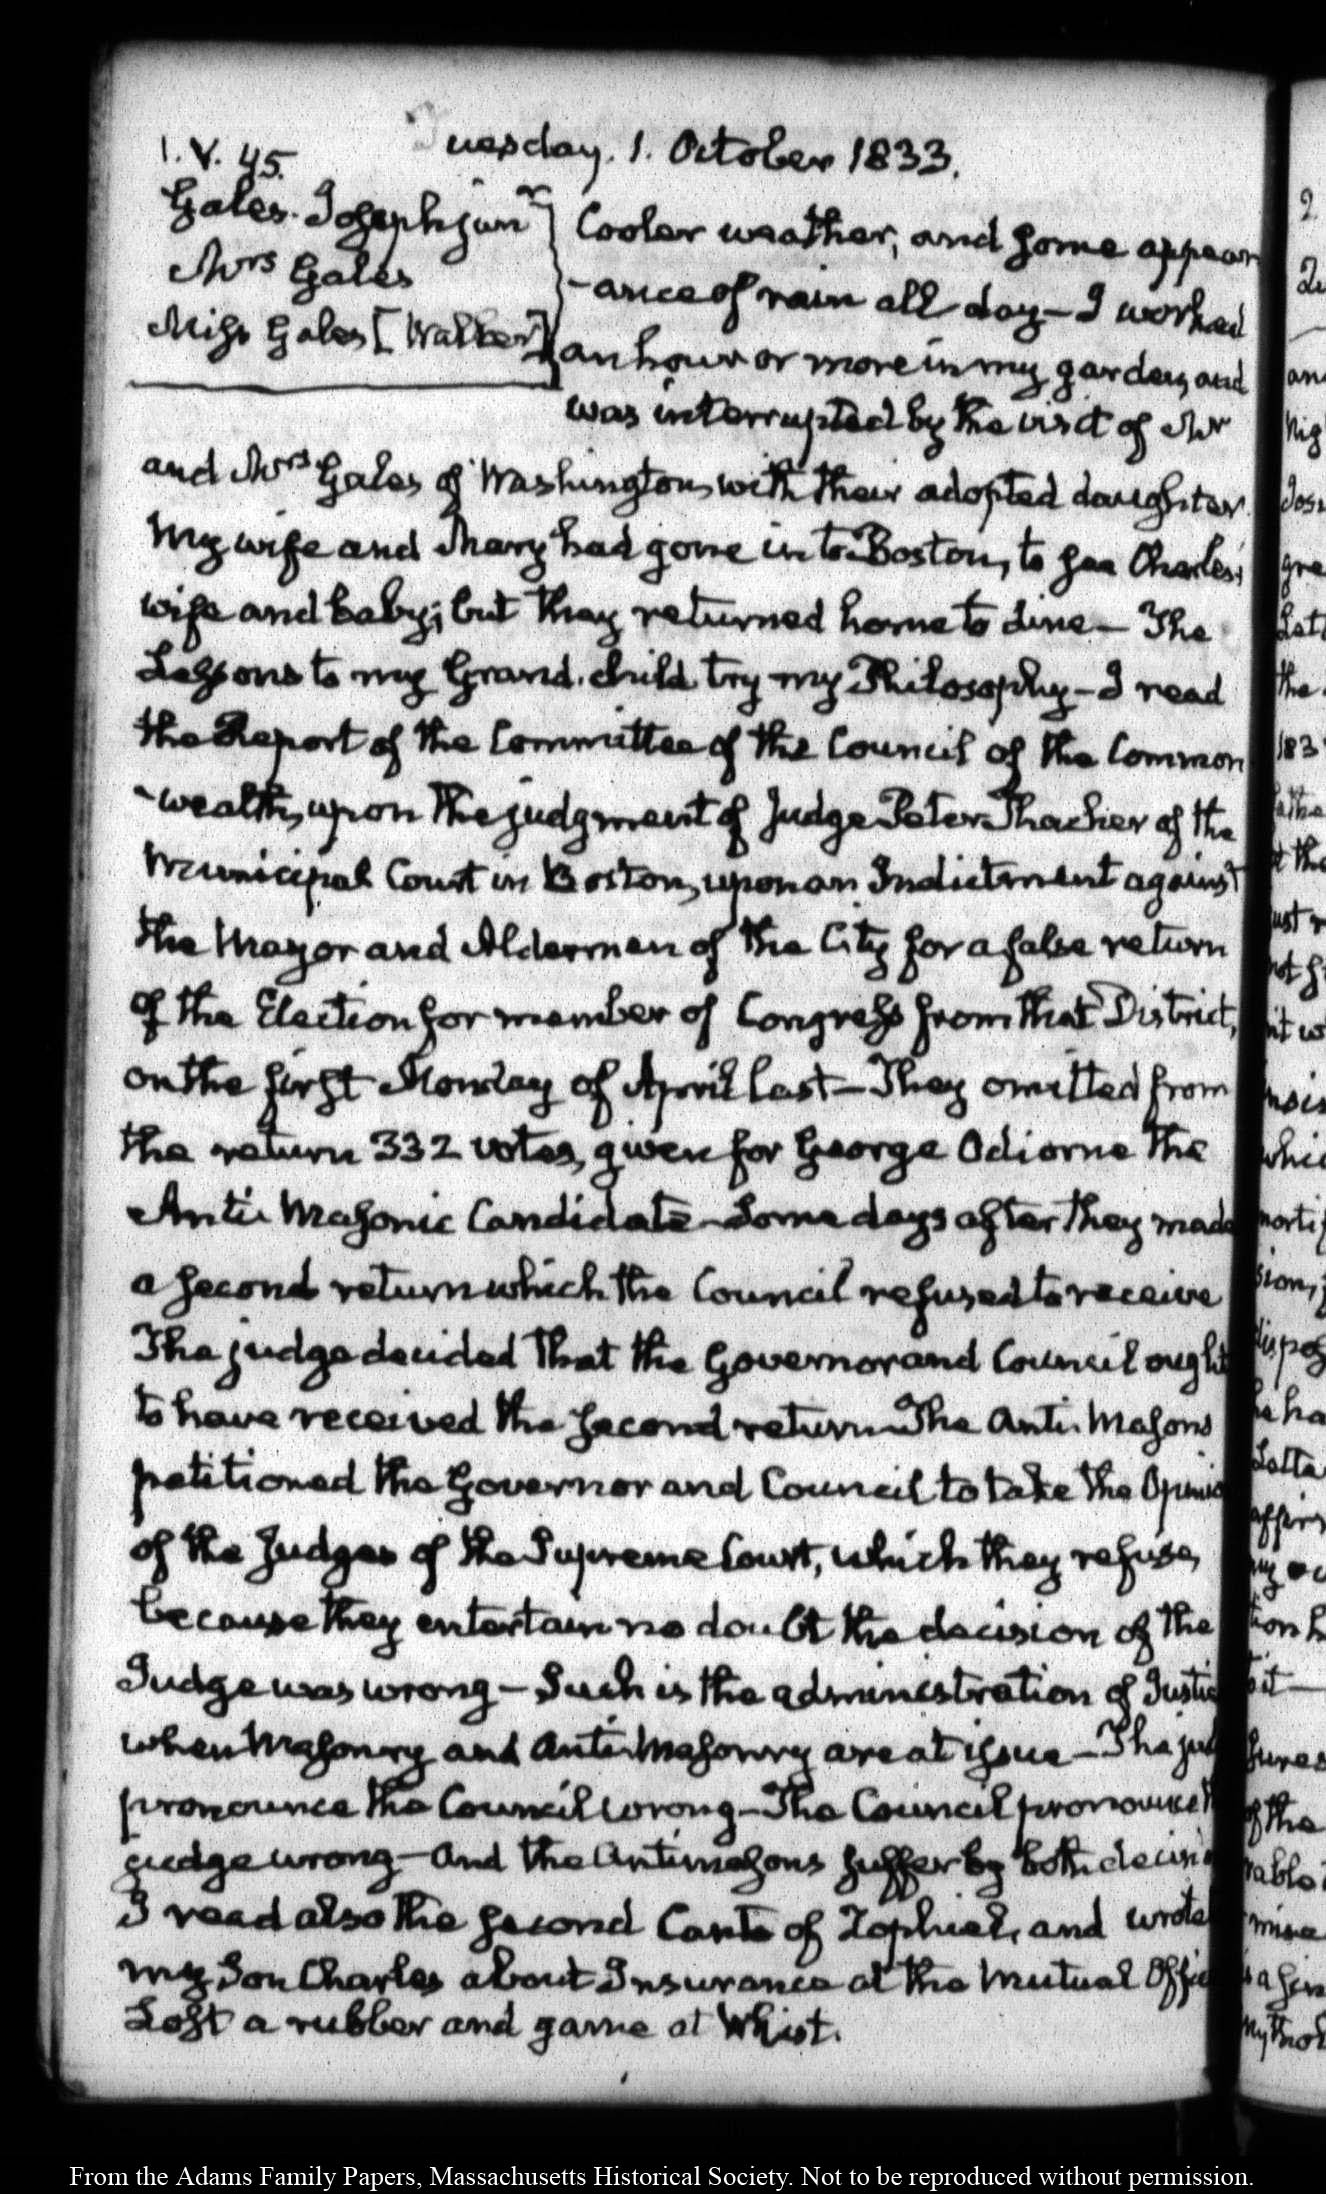 Tuesday. 1. October 1833.
1. V. 45.
Gales. Joseph junr
Mrs Gales
Miss Gales [Walker]
Cooler weather, and some appear
-ance of rain all day — I worked
an hour or more in my garden, and
was interrupted by the visit of Mr
and Mrs Gales of Washington, with their adopted daughter.
My wife and Mary had gone in to Boston, to see Charles's
wife and baby; but they returned home to dine — The
Lessons to my Grand-child try my Philosophy — I read
the Report of the Committee of the Council of the Common
-wealth, upon the judgment of Judge Peter Thacher of the
Municipal Court in Boston, upon an Indictment against
the Mayor and Aldermen of the City for a false return
of the Election for member of Congress from that District,
on the first Monday of April last — They omitted from
the return 332 votes, given for George Odiorne the
Anti-Masonic Candidate — Some days after they made
a second return which the Council refused to receive
The judge decided that the Governor and Council ought
to have received the second return — The Anti-Masons
petitioned the Governor and Council to take the Opinio
of the Judges of the Supreme Court, which they refuse,
because they entertain no doubt the decision of the
Judge was wrong — Such is the administration of Justic
when Masonry and Anti-Masonry are at issue — The jud
pronounce the Council wrong — The Council pronounce t
judge wrong — and the Antimasons suffer by both decisio
I read also the second Canto of Zophiel, and wrote
my Son Charles about Insurance at the Mutual Offic
Lost a rubber and game at Whist.
From the Adams Family Papers, Massachusetts Historical Society. Not to be reproduced without permission.